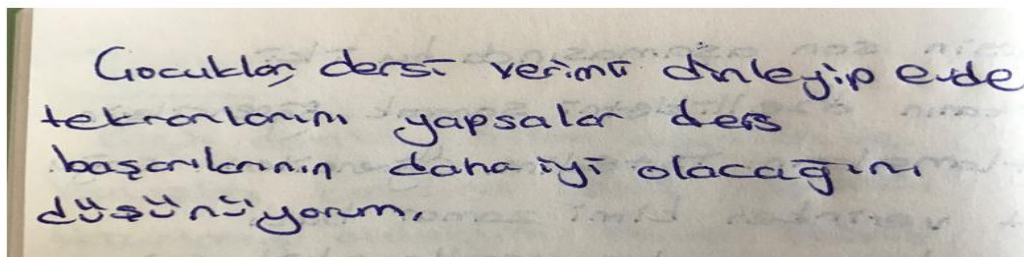 Çocuklar, dersi verimli dinleyip evde
tekrarlarını yapsalar ders
başarılarının daha iyi olacağını
düşünüyorum.